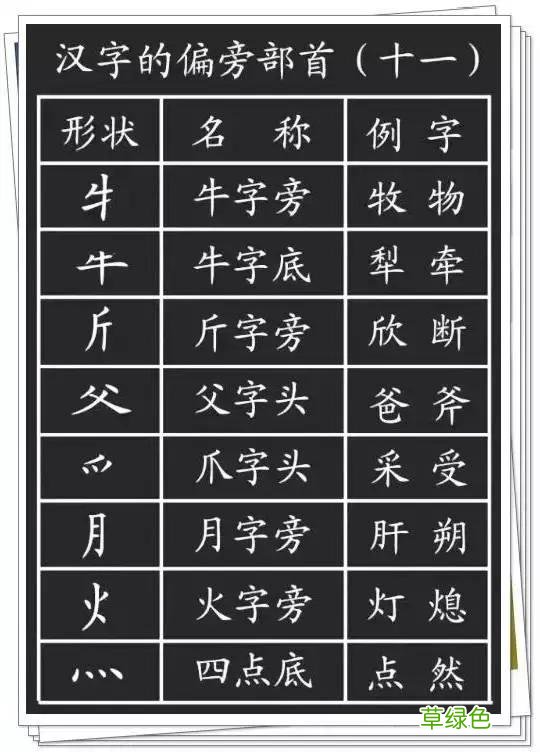 汉字的偏旁部首（十一）
形状 名称 例字
牜 牛字旁 牧 物
牛 牛字底 犁 牵
斤 斤字旁 欣 断
父 父字头 爸 斧
爫 爪字头 采 受
月 月字旁 肝 朔
火 火字旁 灯 熄
灬 四点底 点 然
草绿色